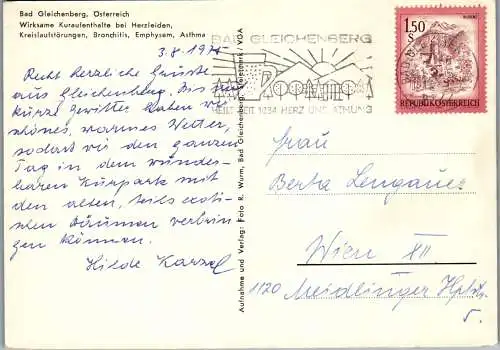 Bad Gleichenberg, Österreich
Wirksame Kuraufenthalte bei Herzleiden,
Kreislaufstörungen, Bronchitis, Emphysem, Asthma
3.8.1975
Recht herzliche Grüsse
aus Gleichenberg. Bis auf
kurze Gewitter haben wir
schönes, warmes Wetter,
sodass wir den ganzen
Tag in dem wunder-
baren Kurpark mit
den alten, teils exoti-
schen Bäumen verbrin-
gen können.
Hilde Karzel
Aufnahme und Verlag: Foto R. Wurm, Bad Gleichenberg, Steiermark/VGA
BAD GLEICHENBERG
HEILT SEIT 1834 HERZ UND ATMUNG
1.50
S
REPUBLIK ÖSTERREICH
Frau
Berta Lengauer
Wien XII
1120 Meidlinger Hptstr.
5.